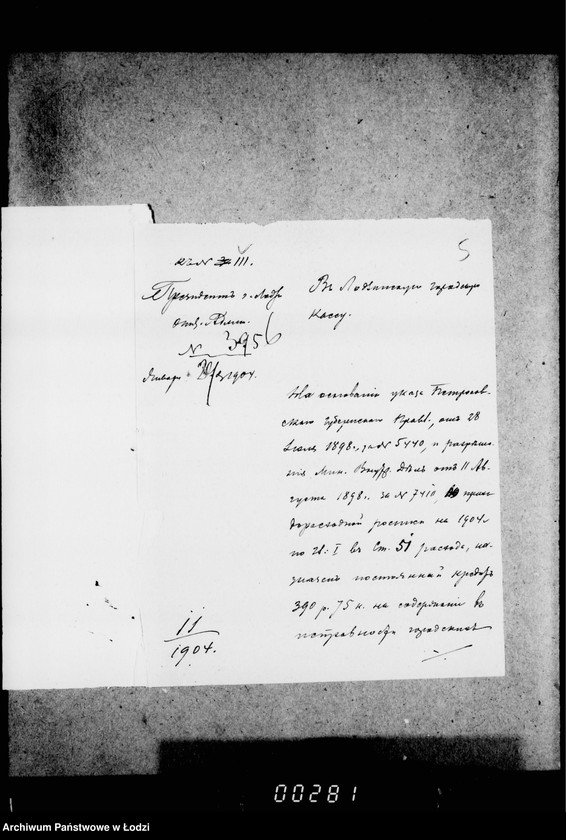 5
къ № III.
Президентъ г. Лодзи
отд. Админ.
№ 3956
Января 1904.
Въ Лодзинскую городскую
Кассу.
На основаніи указа Петроков-
скаго Губернскаго Правл., отъ 28
Іюля 1898., за № 5440, и разрѣше-
нія Мин. Внутр. Дѣлъ отъ 11 Ав-
густа 1898. за № 7410, по прихо-
дорасходной росписи на 1904
по Ч: I въ Ст. 51 расхода, на-
значенъ постоянный кредитъ
390 р. 75 к. на содержаніе въ
исправности городскихъ
11
1904.
00281
Archiwum Państwowe w Łodzi